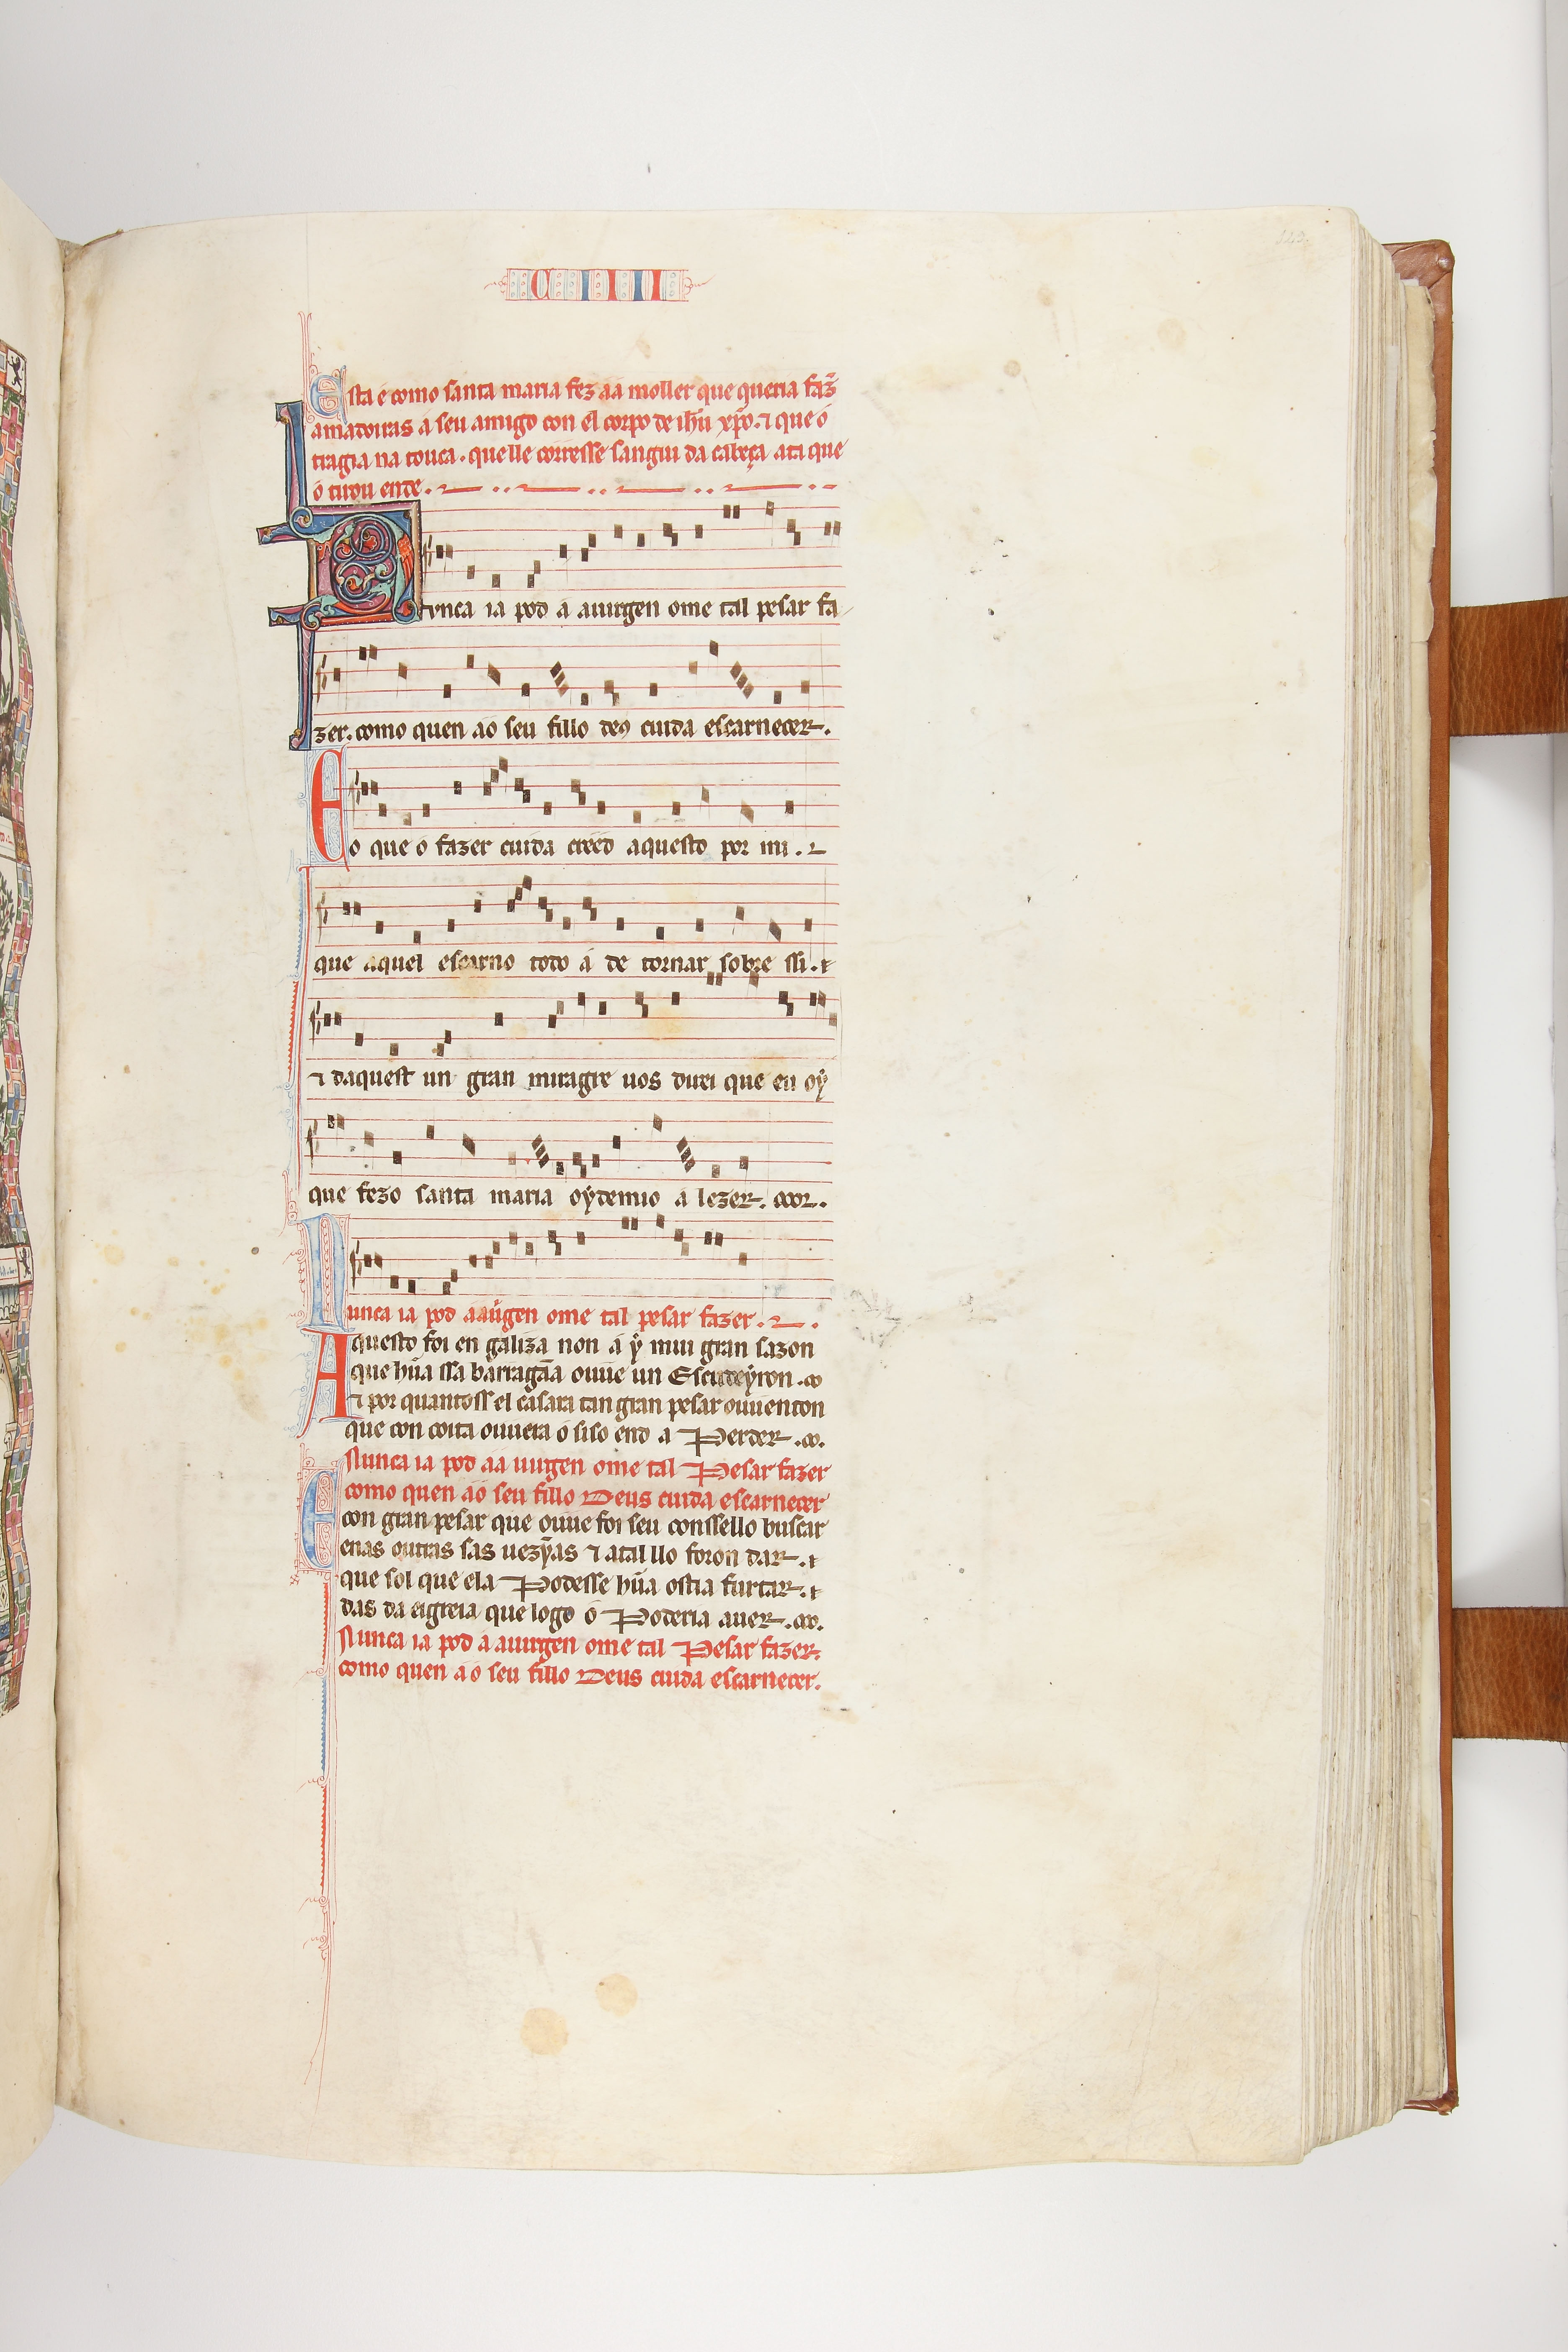 CIIII
Esta é como santa maria fez áá moller que queria faz̃
amadoiras á seu amigo con el corpo de ih̃u xp̃o. ⁊ que ó
tragia na touca. quelle corresse sangui da cabeça ata que
ó tirou ende.
Nunca ia pod á auirgen ome tal pesar fa
zer. como quen áo seu fillo deꝯ cuida escarnecer.
E o que ó fazer cuida creed aquesto por mi.
que aquel escarno todo á de tornar sobre ssi.
⁊ daquest un gran miragre uos direi que eu oẏ
que fezo santa maria oẏdemio á lezer.
Nunca ia pod aaũgen ome tal pesar fazer.
Aquesto foi en galiza non á ẏ mui gran sazon
que hũa ssa barragãa ouue un Escudeẏron.
⁊ por quantoss el casara tan gran pesar ouuenton
que con coita ouuera ó siso end a Perder.
Nunca ia pod áá uirgen ome tal Pesar fazer
como quen áó seu fillo Deus cuida escarnecer
E con gran pesar que ouue foi seu conssello buscar
enas outras sas uezỹas ⁊ atal llo foron dar.
que sol que ela Podesse hũa ostia furtar.
das da eigreia que logo ó Poderia auer.
Nunca ia pod á auirgen ome tal Pesar fazer.
como quen áó seu fillo Deus cuida escarnecer.